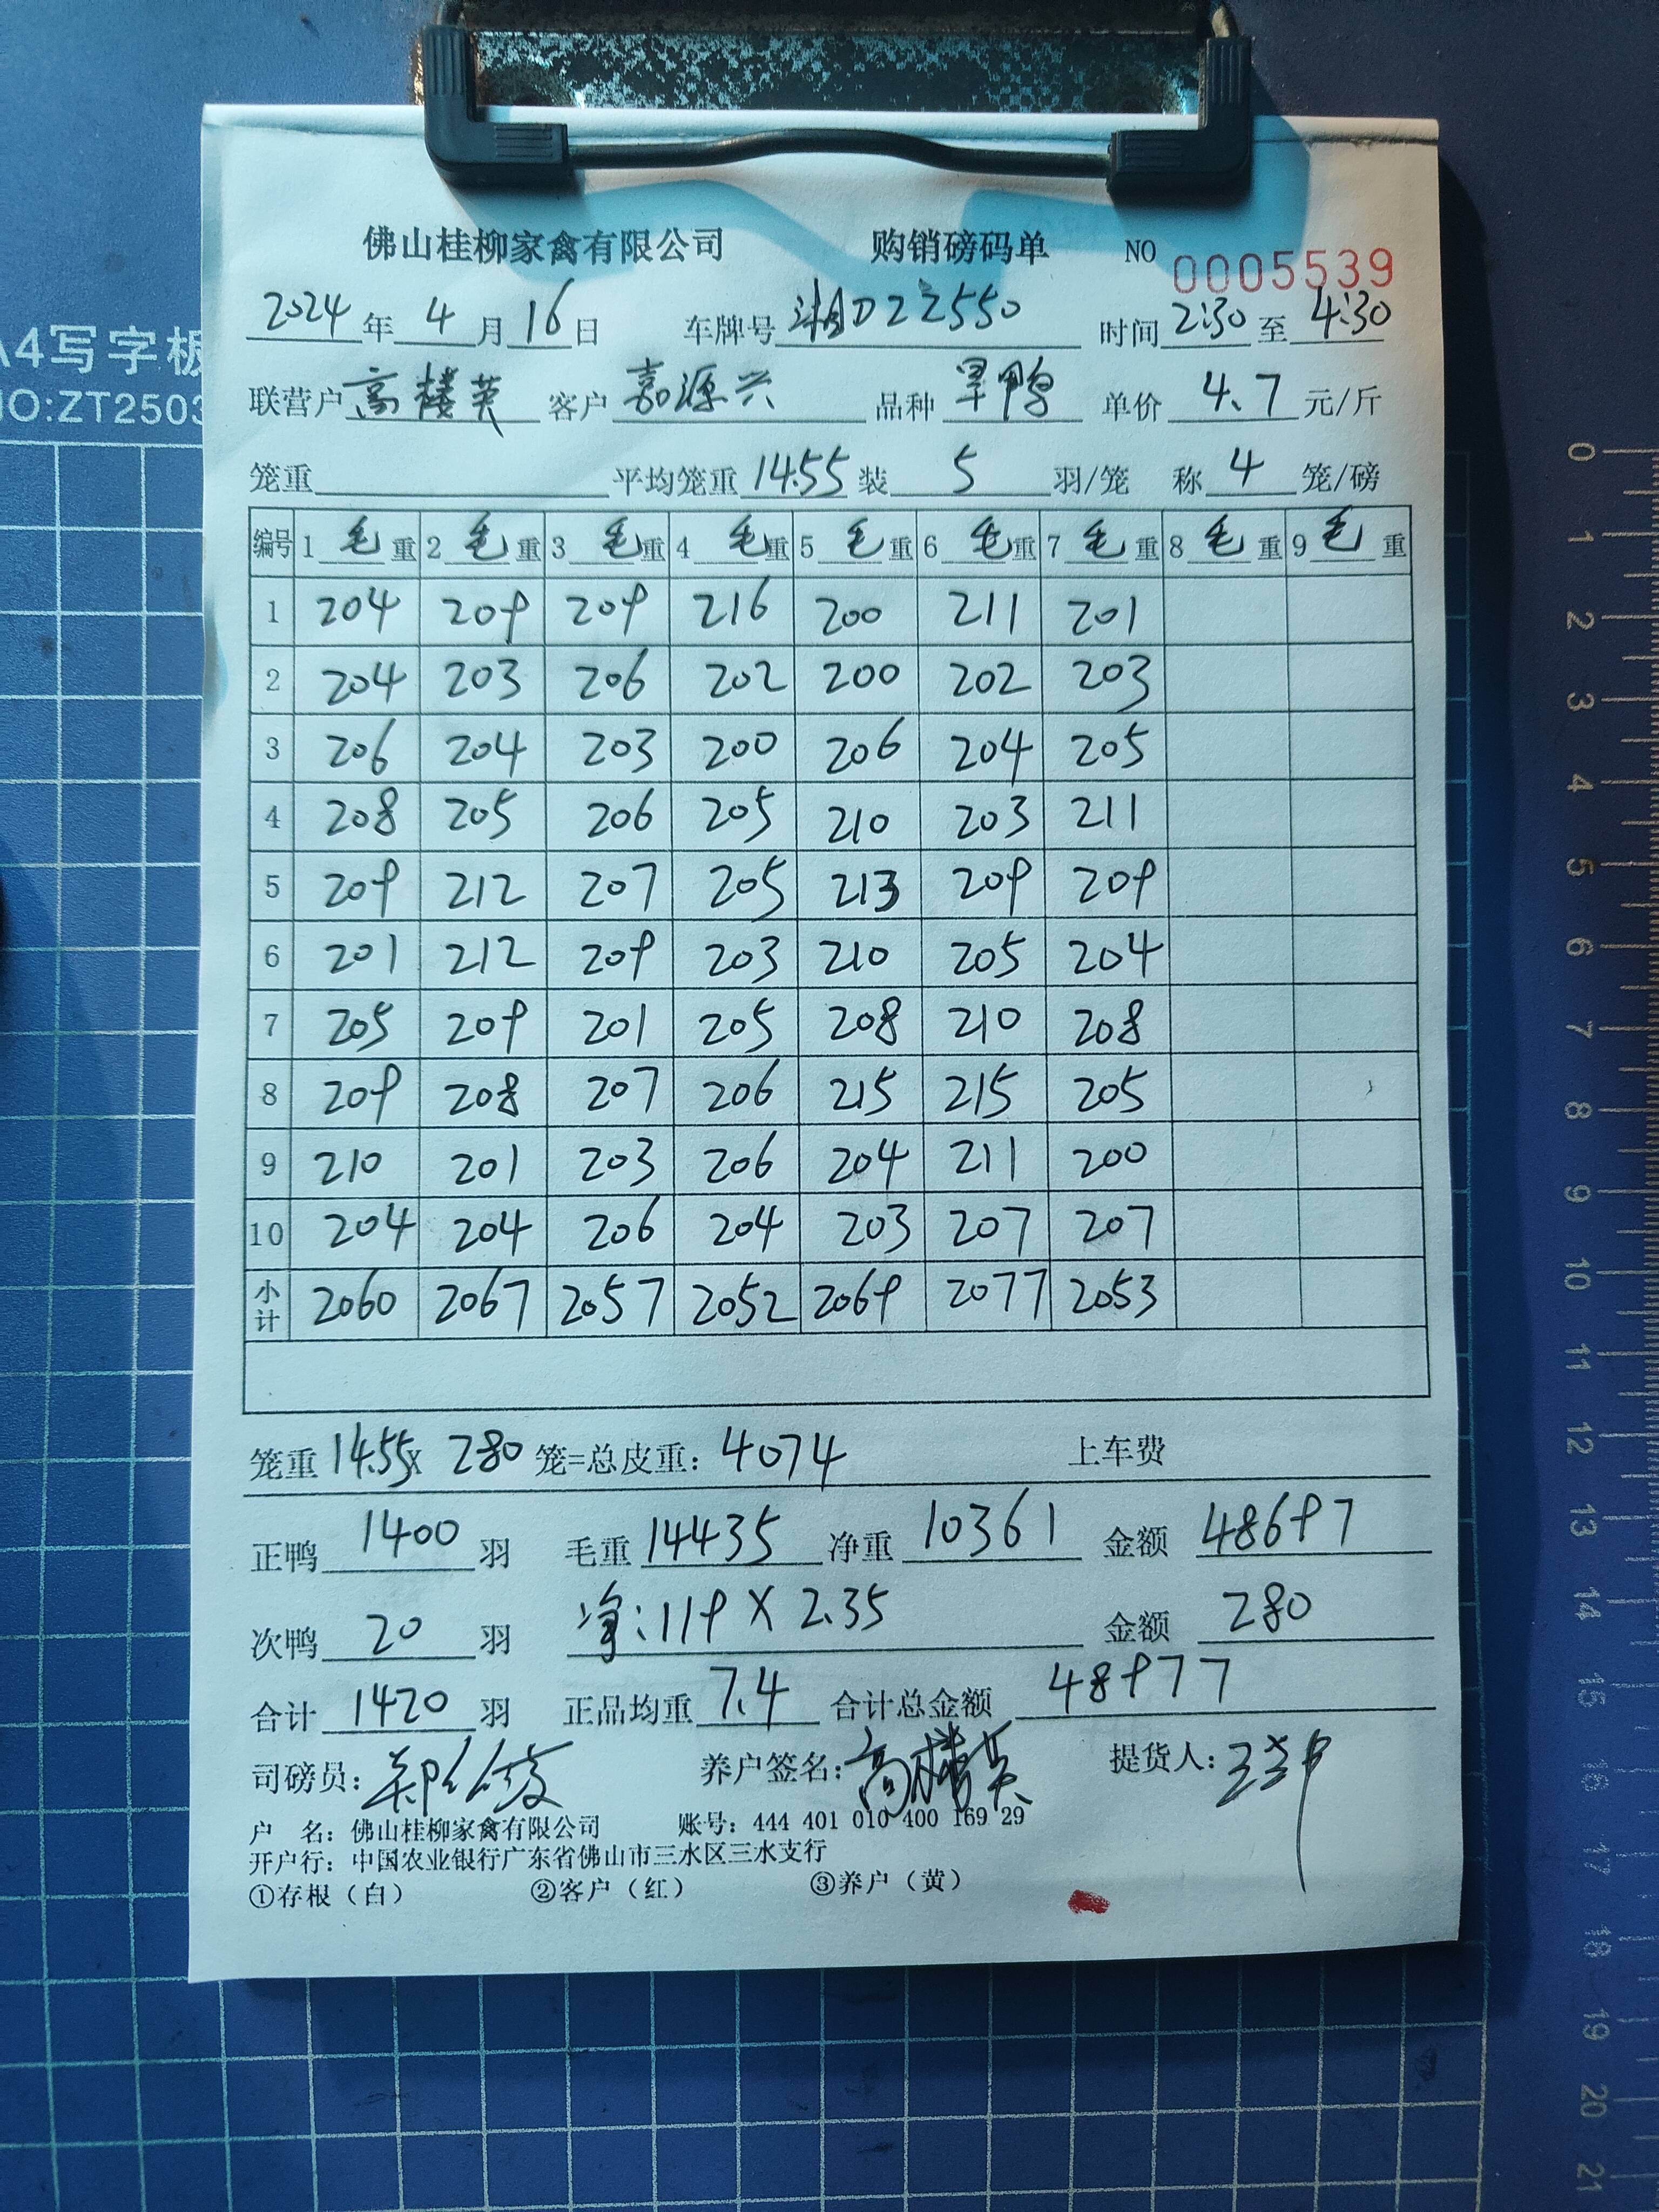 佛山桂柳家禽有限公司 购销磅码单 NO 0005539
2024年4月16日 车牌号 湘D22550 时间 2:30 至 4:30
A4写字板
NO:ZT2503
联营户 高楼英 客户 嘉源兴 品种 旱鸭 单价 4.7 元/斤
笼重 平均笼重 14.55 装 5 羽/笼 称 4 笼/磅
编号 1 毛重 2 毛重 3 毛重 4 毛重 5 毛重 6 毛重 7 毛重 8 毛重 9 毛重
1 204 209 209 216 200 211 201
2 204 203 206 202 200 202 203
3 206 204 203 200 206 204 205
4 208 205 206 205 210 203 211
5 209 212 207 205 213 209 209
6 201 212 209 203 210 205 204
7 205 209 201 205 208 210 208
8 209 208 207 206 215 215 205
9 210 201 203 206 204 211 200
10 204 204 206 204 203 207 207
小计 2060 2067 2057 2052 2069 2077 2053
笼重 14.55 x 280 笼=总皮重: 4074 上车费
正鸭 1400 羽 毛重 14435 净重 10361 金额 48697
次鸭 20 羽 净:119 X 2.35 金额 280
合计 1420 羽 正品均重 7.4 合计总金额 48977
司磅员: 养户签名: 高楼英 提货人:
户 名: 佛山桂柳家禽有限公司 账号: 444 401 010 400 169 29
开户行: 中国农业银行广东省佛山市三水区三水支行
①存根（白） ②客户（红） ③养户（黄）
0
1
2
3
4
5
6
7
8
9
10
11
12
13
14
15
16
17
18
19
20
21